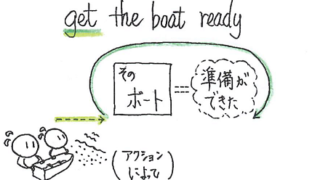 get the boat ready
その
ボート
準備が
できた
(アクション
によって)